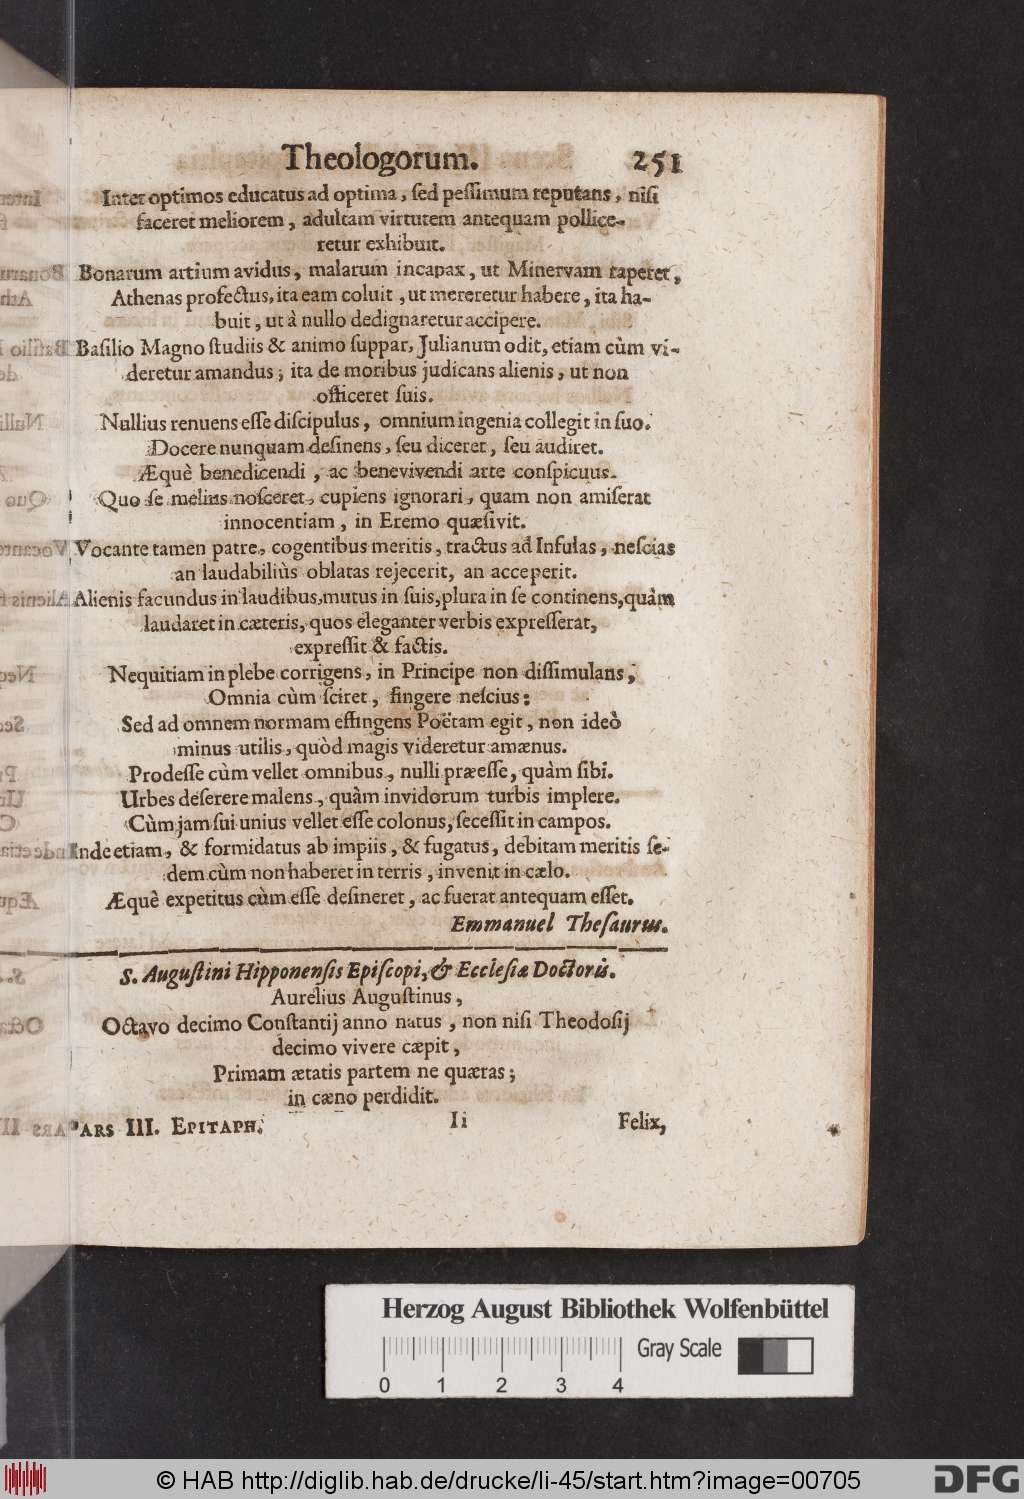 Theologorum. 251
Inter optimos educatus ad optima, sed pessimum reputans, nisi
faceret meliorem, adultam virtutem antequam pollice-
retur exhibuit.
Bonarum artium avidus, malarum incapax, ut Minervam raperet,
Athenas profectus, ita eam coluit, ut mereretur habere, ita ha-
buit, ut à nullo dedignaretur accipere.
Basilio Magno studiis & animo suppar, Julianum odit, etiam cùm vi-
deretur amandus; ita de moribus judicans alienis, ut non
officeret suis.
Nullius renuens esse discipulus, omnium ingenia collegit in suo.
Docere nunquam desinens, seu diceret, seu audiret.
Æquè benedicendi, ac benevivendi arte conspicuus.
Quo se melius nosceret, cupiens ignorari, quam non amiserat
innocentiam, in Eremo quæsivit.
Vocante tamen patre, cogentibus meritis, tractus ad Infulas, nescias
an laudabiliùs oblatas rejecerit, an acceperit.
Alienis facundus in laudibus, mutus in suis, plura in se continens, quàm
laudaret in cæteris, quos eleganter verbis expresserat,
expressit & factis.
Nequitiam in plebe corrigens, in Principe non dissimulans,
Omnia cùm sciret, fingere nescius:
Sed ad omnem normam effingens Poëtam egit, non ideò
minus utilis, quòd magis videretur amænus.
Prodesse cùm vellet omnibus, nulli præesse, quàm sibi.
Urbes deserere malens, quàm invidorum turbis implere.
Cùm jam sui unius vellet esse colonus, secessit in campos.
Inde etiam, & formidatus ab impiis, & fugatus, debitam meritis se-
dem cùm non haberet in terris, invenit in cælo.
Æquè expetitus cùm esse desineret, ac fuerat antequam esset.
Emmanuel Thesaurus.
S. Augustini Hipponensis Episcopi, & Ecclesiæ Doctoris.
Aurelius Augustinus,
Octavo decimo Constantij anno natus, non nisi Theodosij
decimo vivere cæpit,
Primam ætatis partem ne quæras;
in cæno perdidit.
PARS III. EPITAPH. Ii Felix,
Herzog August Bibliothek Wolfenbüttel
Gray Scale
0 1 2 3 4
© HAB http://diglib.hab.de/drucke/li-45/start.htm?image=00705
DFG